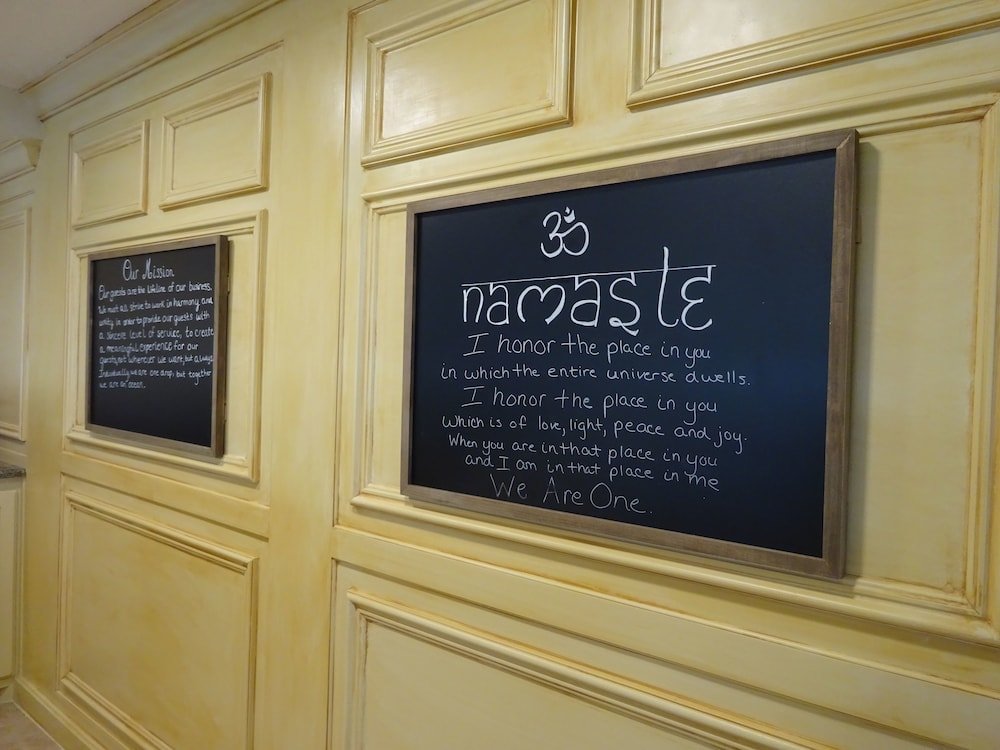 Our Mission
Our guests are the lifeline of our business.
We must all strive to work in harmony and
unity in order to provide our guests with
a sincere level of service, to create
a meaningful experience for our
guests, not whenever we want, but always.
Individually, we are one drop, but together
we are an ocean.
ॐ
namaste
I honor the place in you
in which the entire universe dwells.
I honor the place in you
which is of love, light, peace and joy.
When you are in that place in you
and I am in that place in me
We Are One.